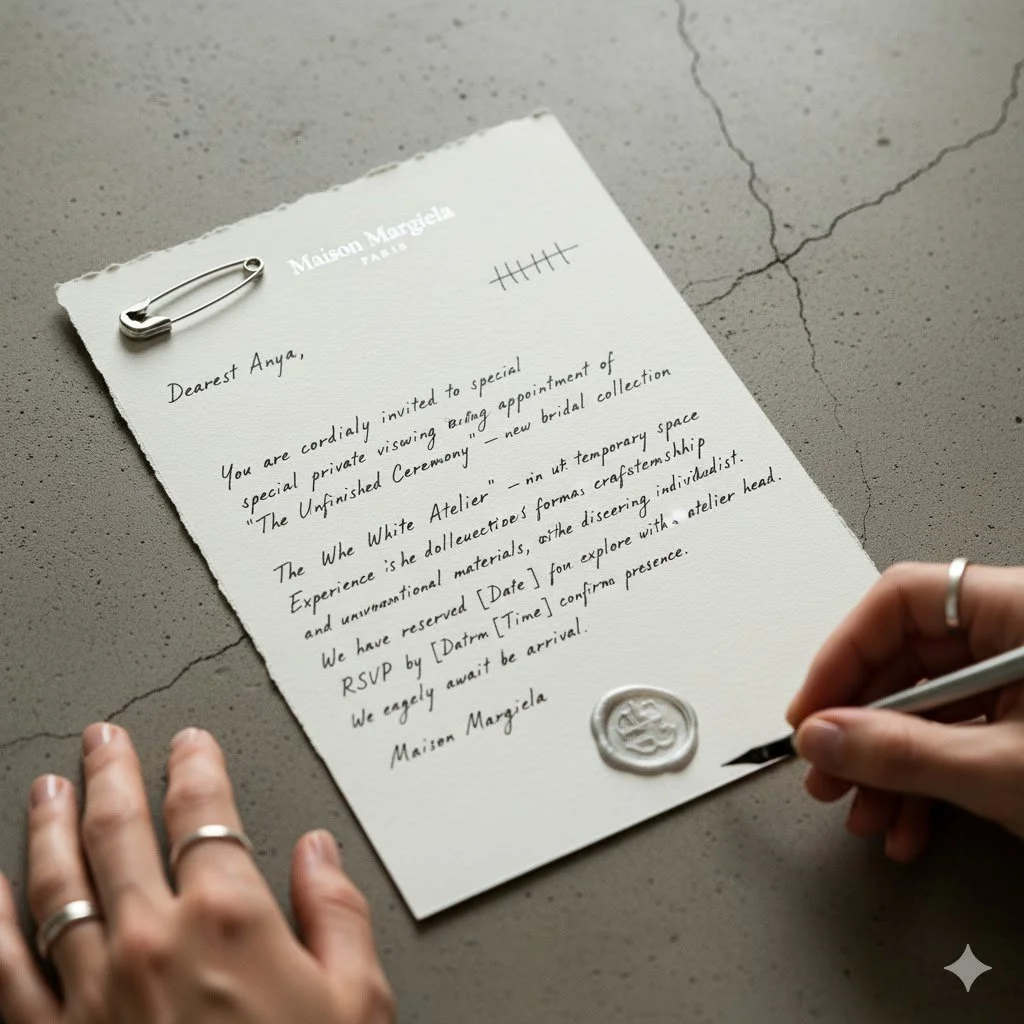 Maison Margiela
PARIS
Dearest Anya,
You are cordialy invited to special
special private viswing appointment of
"The Unfinished Ceremony" – new bridal collection
The Whe White Atelier" – in ut. temporary space
Experience is he formas crafstemshhip
and materials, the disceering
We have reserved [Date] fou explore with atelier head.
RSVP by [Datrm [Time] confirma presence.
We eagely await be arrival.
Maison Margiela